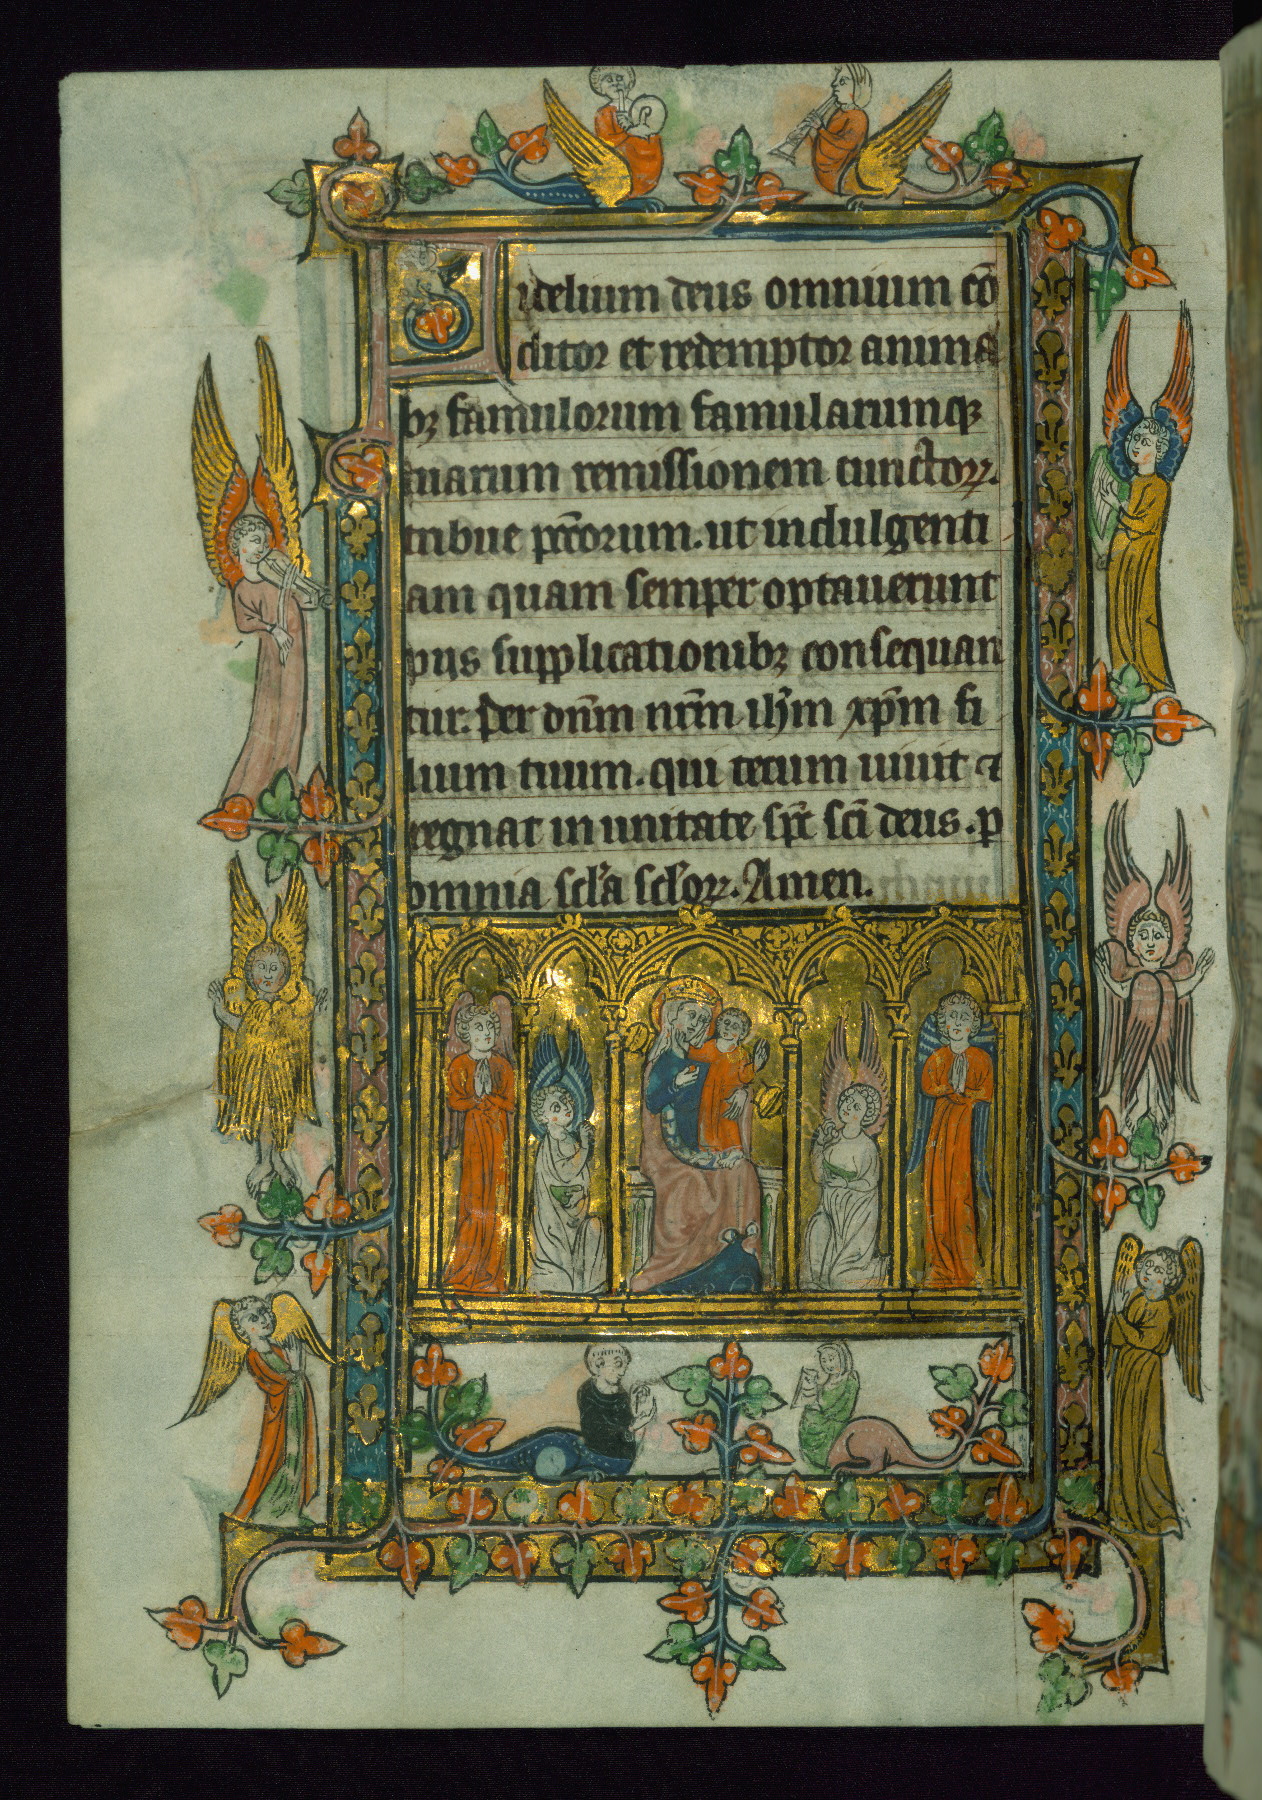 Fidelium deus omnium cō
ditor et redemptor anima
bꝫ famulorum famularumqꝫ
tuarum remissionem cunctorꝝ.
tribue pc̄corum. ut indulgenti
am quam semper optauerunt
piis supplicationibꝫ consequan
tur. Per dn̄m nr̄m ih̄m xp̄m fi
lium tuum. qui tecum uiuit ⁊
regnat in unitate sp̄c sc̄i deus. p
omnia scl̄a scl̄orꝝ. Amen.